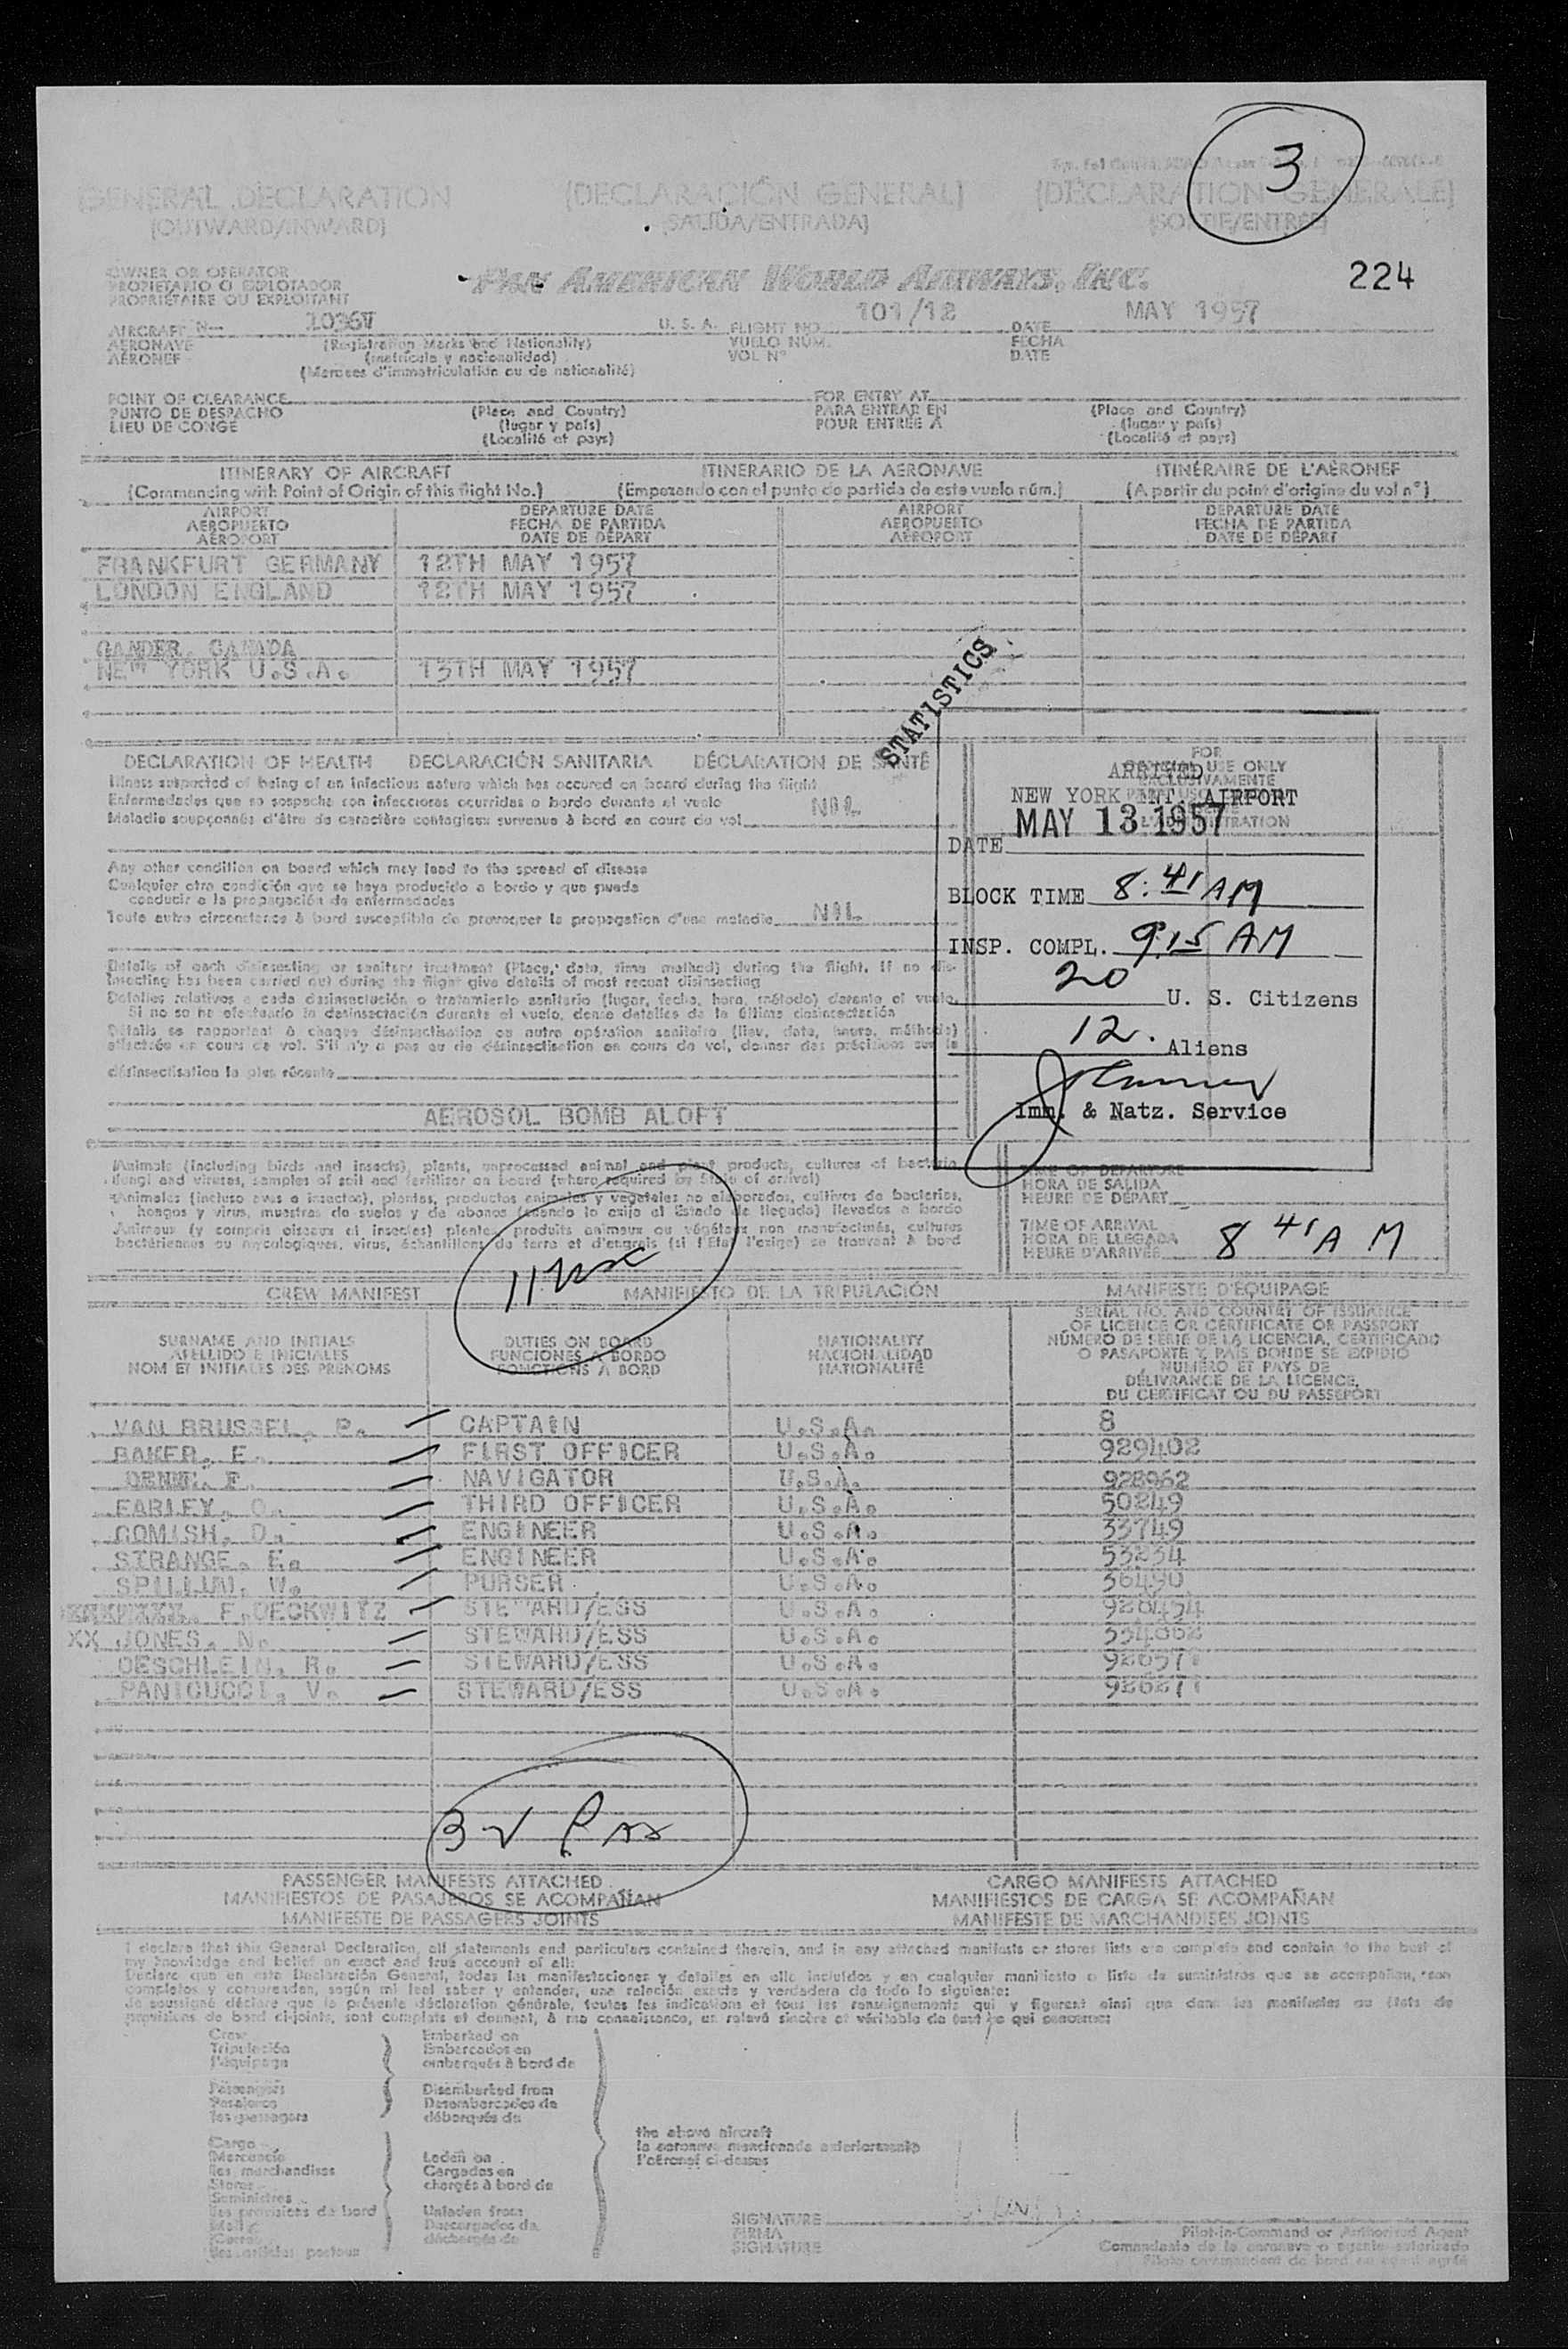 3
GENERAL DECLARATION [DECLARACIÓN GENERAL] [DÉCLARATION GÉNÉRALE]
[OUTWARD/INWARD] [SALIDA/ENTRADA] [SORTIE/ENTRÉE]
OWNER OR OPERATOR
PROPIETARIO O EXPLOTADOR
PROPRIÉTAIRE OU EXPLOITANT
PAN AMERICAN WORLD AIRWAYS, INC.
224
AIRCRAFT N— 1036V U. S. A. FLIGHT NO. 101/12 DATE MAY 1957
AERONAVE (Registration Marks and Nationality) VUELO NÚM. FECHA
AÉRONEF (matrícula y nacionalidad) VOL Nº DATE
(Marques d'immatriculation ou de nationalité)
POINT OF CLEARANCE FOR ENTRY AT
PUNTO DE DESPACHO (Place and Country) PARA ENTRAR EN (Place and Country)
LIEU DE CONGÉ (lugar y país) POUR ENTRÉE A (lugar y país)
(Localité et pays) (Localité et pays)
ITINERARY OF AIRCRAFT ITINERARIO DE LA AERONAVE ITINÉRAIRE DE L'AÉRONEF
(Commencing with Point of Origin of this flight No.) (Empezando con el punto de partida de este vuelo núm.) (A partir du point d'origine du vol nº)
AIRPORT DEPARTURE DATE AIRPORT DEPARTURE DATE
AEROPUERTO FECHA DE PARTIDA AEROPUERTO FECHA DE PARTIDA
AÉROPORT DATE DE DÉPART AÉROPORT DATE DE DÉPART
FRANKFURT GERMANY 12TH MAY 1957
LONDON ENGLAND 12TH MAY 1957
GANDER, CANADA
NEW YORK U.S.A. 13TH MAY 1957
STATISTICS
DECLARATION OF HEALTH DECLARACIÓN SANITARIA DÉCLARATION DE SANTÉ
Illness suspected of being of an infectious nature which has occured on board during the flight
Enfermedades que se sospecha son infecciosas ocurridas a bordo durante el vuelo NIL
Maladie soupçonnés d'être de caractère contagieux survenue à bord en cours de vol
Any other condition on board which may lead to the spread of disease
Cualquier otra condición que se haya producido a bordo y que pueda
conducir a la propagación de enfermedades
Toute autre circonstance à bord susceptible de provoquer la propagation d'une maladie NIL
Details of each disinsecting or sanitary treatment (Place, date, time method) during the flight. If no dis-
insecting has been carried out during the flight give details of most recent disinsecting
Detalles relativos a cada desinsectución o tratamiento sanitario (lugar, fecha, hora, método) durante el vuelo.
Si no se ha efectuado la desinsectación durante el vuelo, dense detalles de la última desinsectación
Détails se rapportant à chaque désinsectisation ou autre opération sanitaire (lieu, date, heure, méthode)
effectuée en cours de vol. S'il n'y a pas eu de désinsectisation en cours de vol, donner des précisions sur la
désinsectisation la plus récente
AEROSOL BOMB ALOFT
FOR
OFFICIAL USE ONLY
EXCLUSIVAMENTE
ARRIVED
NEW YORK INT. AIRPORT
DATE MAY 13 1957
BLOCK TIME 8:41 AM
INSP. COMPL. 9:15 AM
20 U. S. Citizens
12. Aliens
Imm. & Natz. Service
Animals (including birds and insects), plants, unprocessed animal and plant products, cultures of bacteria
fungi and viruses, samples of soil and fertilizer on board (where required by State of arrival)
Animales (incluso aves e insectos), plantas, productos animales y vegetales no elaborados, cultivos de bacterias,
hongos y virus, muestras de suelos y de abonos (cuando lo exija el Estado de llegada) llevados a bordo
Animaux (y compris oiseaux et insectes) plantes, produits animaux ou végétaux non manufacturés, cultures
bactériennes ou mycologiques, virus, échantillons de terre et d'engrais (si l'État l'exige) se trouvant à bord
TIME OF DEPARTURE
HORA DE SALIDA
HEURE DE DÉPART
TIME OF ARRIVAL
HORA DE LLEGADA
HEURE D'ARRIVÉE 8 41 A M
11 usc
CREW MANIFEST MANIFIESTO DE LA TRIPULACIÓN MANIFESTE D'ÉQUIPAGE
SURNAME AND INITIALS DUTIES ON BOARD NATIONALITY SERIAL NO. AND COUNTRY OF ISSUANCE
APELLIDO E INICIALES FUNCIONES A BORDO NACIONALIDAD OF LICENCE OR CERTIFICATE OR PASSPORT
NOM ET INITIALES DES PRÉNOMS FONCTIONS A BORD NATIONALITÉ NÚMERO DE SERIE DE LA LICENCIA, CERTIFICADO
O PASAPORTE Y PAÍS DONDE SE EXPIDIÓ
NUMÉRO ET PAYS DE
DÉLIVRANCE DE LA LICENCE,
DU CERTIFICAT OU DU PASSEPORT
VAN BRUSSEL, P. CAPTAIN U.S.A. 8
BAKER, E. FIRST OFFICER U.S.A. 929402
DENN, F. NAVIGATOR U.S.A. 928962
EARLEY, O. THIRD OFFICER U.S.A. 50249
COMISH, D. ENGINEER U.S.A. 33749
STRANGE, E. ENGINEER U.S.A. 53234
SPILLUM, W. PURSER U.S.A. 36490
F. DECKWITZ STEWARD/ESS U.S.A. 926454
XX JONES, N. STEWARD/ESS U.S.A. 334062
OESCHLEIN, R. STEWARD/ESS U.S.A. 926571
PANIGUCCI, V. STEWARD/ESS U.S.A. 926271
32 Pax
PASSENGER MANIFESTS ATTACHED CARGO MANIFESTS ATTACHED
MANIFIESTOS DE PASAJEROS SE ACOMPAÑAN MANIFIESTOS DE CARGA SE ACOMPAÑAN
MANIFESTE DE PASSAGERS JOINTS MANIFESTE DE MARCHANDISES JOINTS
I declare that this General Declaration, all statements and particulars contained therein, and in any attached manifests or stores lists are complete and contain to the best of
my knowledge and belief an exact and true account of all:
Declaro que en esta Declaración General, todas las manifestaciones y detalles en ella incluídos y en cualquier manifiesto o lista de suministros que se acompañan, son
completos y comprenden, según mi leal saber y entender, una relación exacta y verdadera de todo lo siguiente:
Je soussigné déclare que la présente déclaration générale, toutes les indications et tous les renseignements qui y figurent ainsi que dans les manifestes ou états de
provisions de bord ci-joints, sont complets et donnent, à ma connaissance, un relevé sincère et véritable de tout ce qui concerne:
Crew Embarked on
Tripulación Embarcados en
l'équipage embarqués à bord de
Passengers Disembarked from
Pasajeros Desembarcados de
les passagers débarqués de
the above aircraft
la aeronave mencionada anteriormente
l'aéronef ci-dessus
Cargo
Mercancía Laden on
les marchandises Cargadas en
Stores chargés à bord de
Suministros
les provisions de bord Unladen from
Mail Descargados de
Correo déchargés de
les articles postaux
SIGNATURE
FIRMA
SIGNATURE
Pilot-in-Command or Authorized Agent
Comandante de la aeronave o agente autorizado
Pilote commandant de bord ou agent agréé